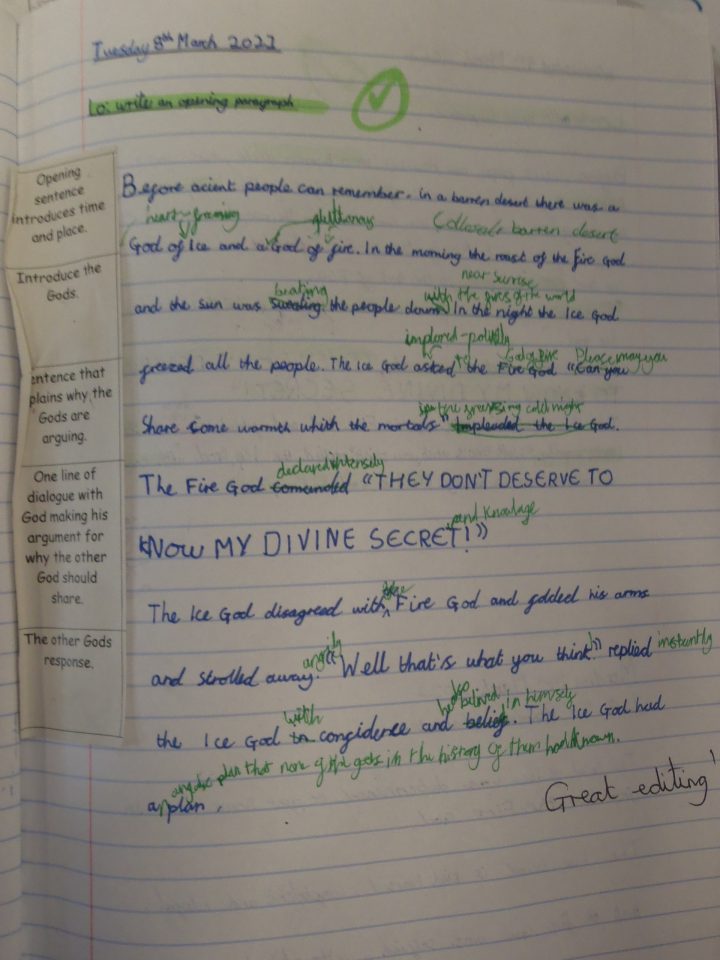 Tuesday 8th March 2022
Lo: write an opening paragraph
Opening
sentence
introduces time
and place.
Introduce the
Gods.
entence that
plains why the
Gods are
arguing.
One line of
dialogue with
God making his
argument for
why the other
God should
share.
The other Gods
response.
Before acient people can remember. in a barren desert there was a
barren desert
God of Ice and a God of fire. In the morning the roast of the Fire God
near sunrise
beating with the of the world
and the sun was the people down In the night the Ice God
implored-politly
God of Fire Please may you
freezed all the people. The Ice God asked the Fire God "Can you
freezing cold night
Share some warmth whith the mortals" Impleaded the Ice God.
declared intensely
The Fire God comanded "THEY DON'T DESERVE TO
and Knowlage
KNOW MY DIVINE SECRET!"
The Ice God disagread with Fire God and folded his arms
angrily
and strolled away. "Well that's what you think!" replied instantly
with belived in himself
the Ice God in confidence and belief. The Ice God had
plan that none of the gods in the history of them had known.
a plan.
Great editing!